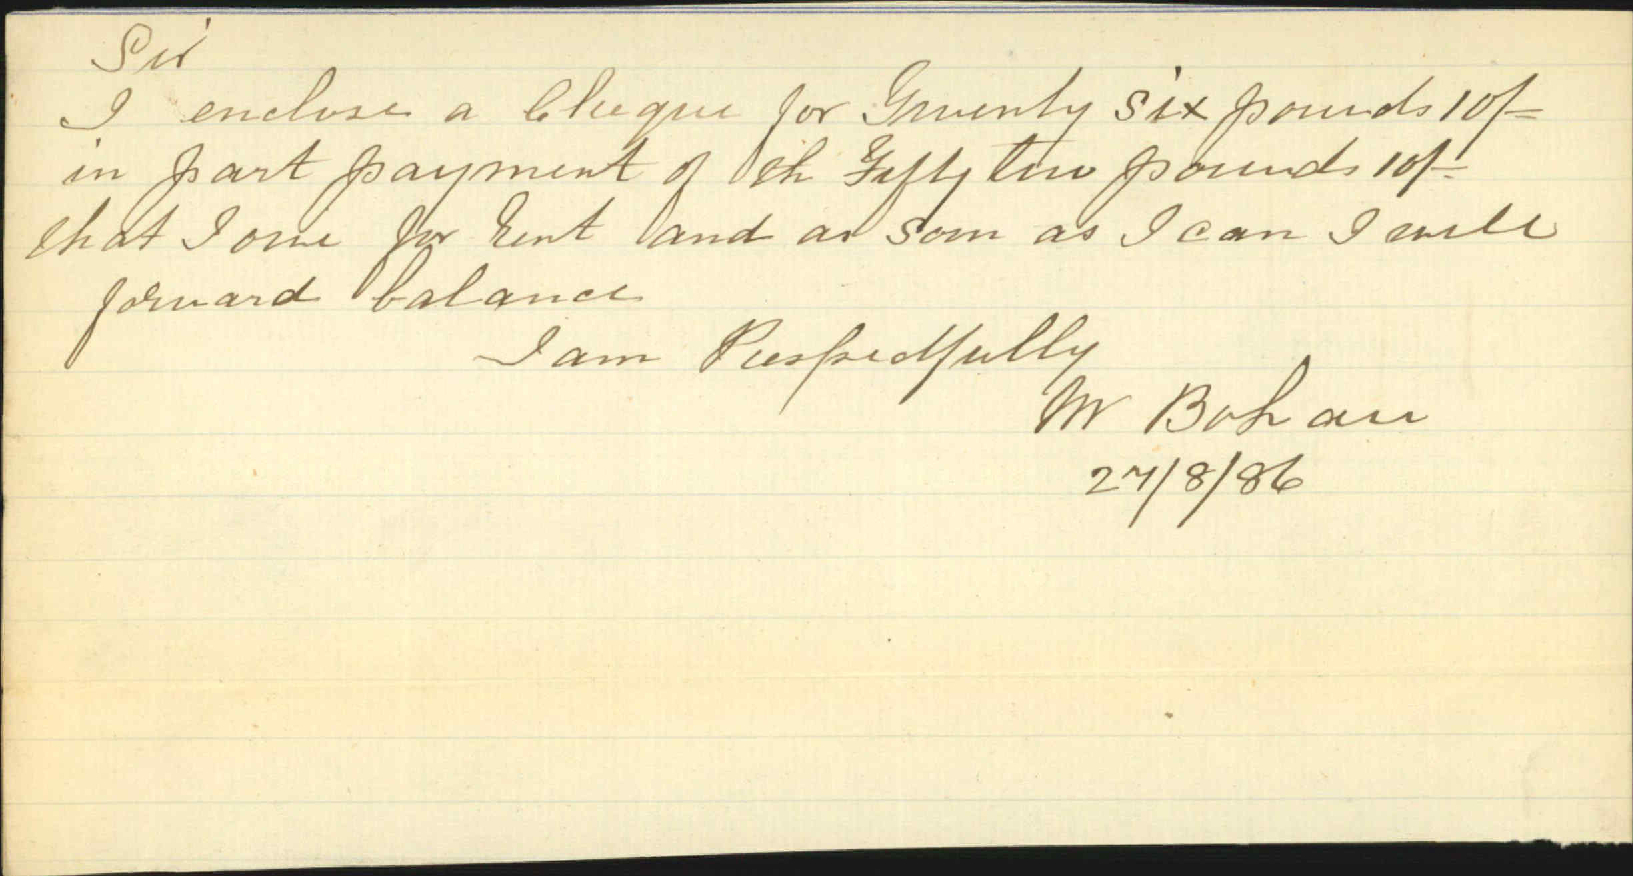 Sir
I enclose a Cheque for Twenty six pounds 10/-
in part payment of th Fifty two pounds 10/-
that I owe for Rent and as soon as I can I will
forward balance
I am Respectfully
M Bohan
27/8/86